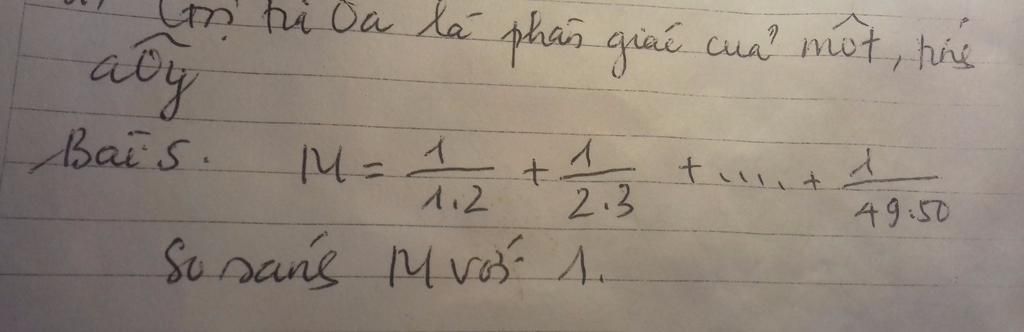 Oa là phân giác của môt, tính
aÔy
Bài 5. M = 1/1.2 + 1/2.3 + ..... + 1/49.50
So sánh M với 1.